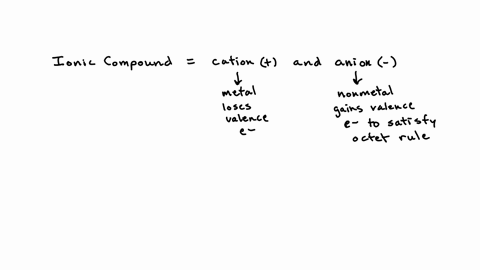 Ionic Compound = cation (+) and anion (-)
metal
loses
valence
e-
nonmetal
gains valence
e- to satisfy
octet rule